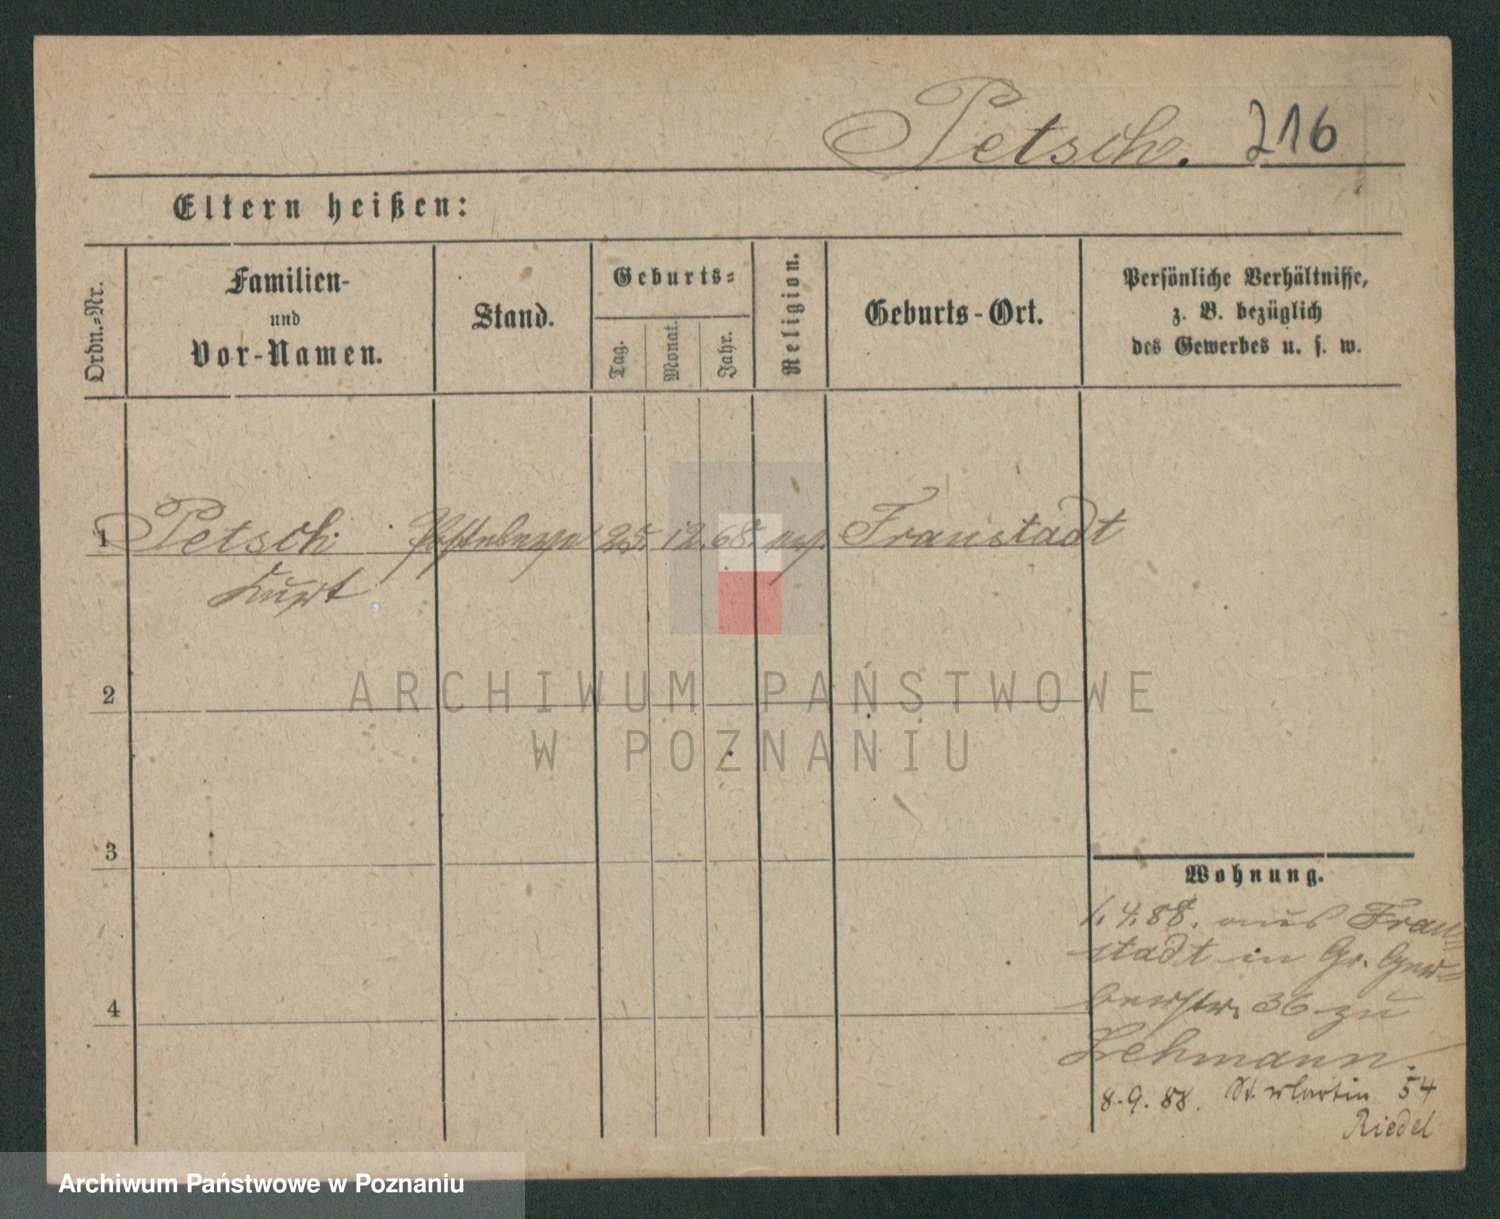 Petsch. 216
Eltern heißen:
Ordn.-Nr.
Familien-
und
Vor-Namen.
Stand.
Geburts-
Tag.
Monat.
Jahr.
Religion.
Geburts-Ort.
Persönliche Verhältnisse,
z. B. bezüglich
des Gewerbes u. s. w.
1 Petsch 25. 12. 68. Fraustadt
Kurt
2
3
4
Wohnung.
1. 4. 88. aus Frau-
stadt in Gr. Ger-
berstr. 36 zu
Lehmann.
8.9.88. St. Martin 54
Riedel
ARCHIWUM PAŃSTWOWE
W POZNANIU
Archiwum Państwowe w Poznaniu